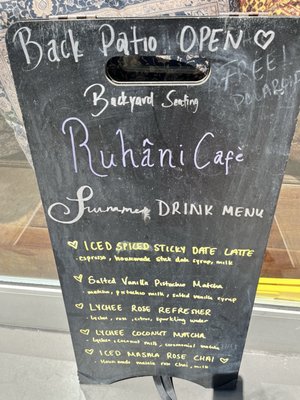 Back Patio OPEN ♡
FREE!
Backyard Seating
Ruhâni Café
Summer DRINK MENU
♡ ICED SPICED STICKY DATE LATTE
espresso, housemade stick date syrup, milk
♡ Salted Vanilla Pistachio Matcha
matcha, pistachio milk, salted vanilla syrup
♡ LYCHEE ROSE REFRESHER
lychee, rose, citrus, sparkling water
♡ LYCHEE COCONUT MATCHA
lychee, coconut milk, ceremonial matcha
♡ ICED MASALA ROSE CHAI ♡
masala rose chai, milk